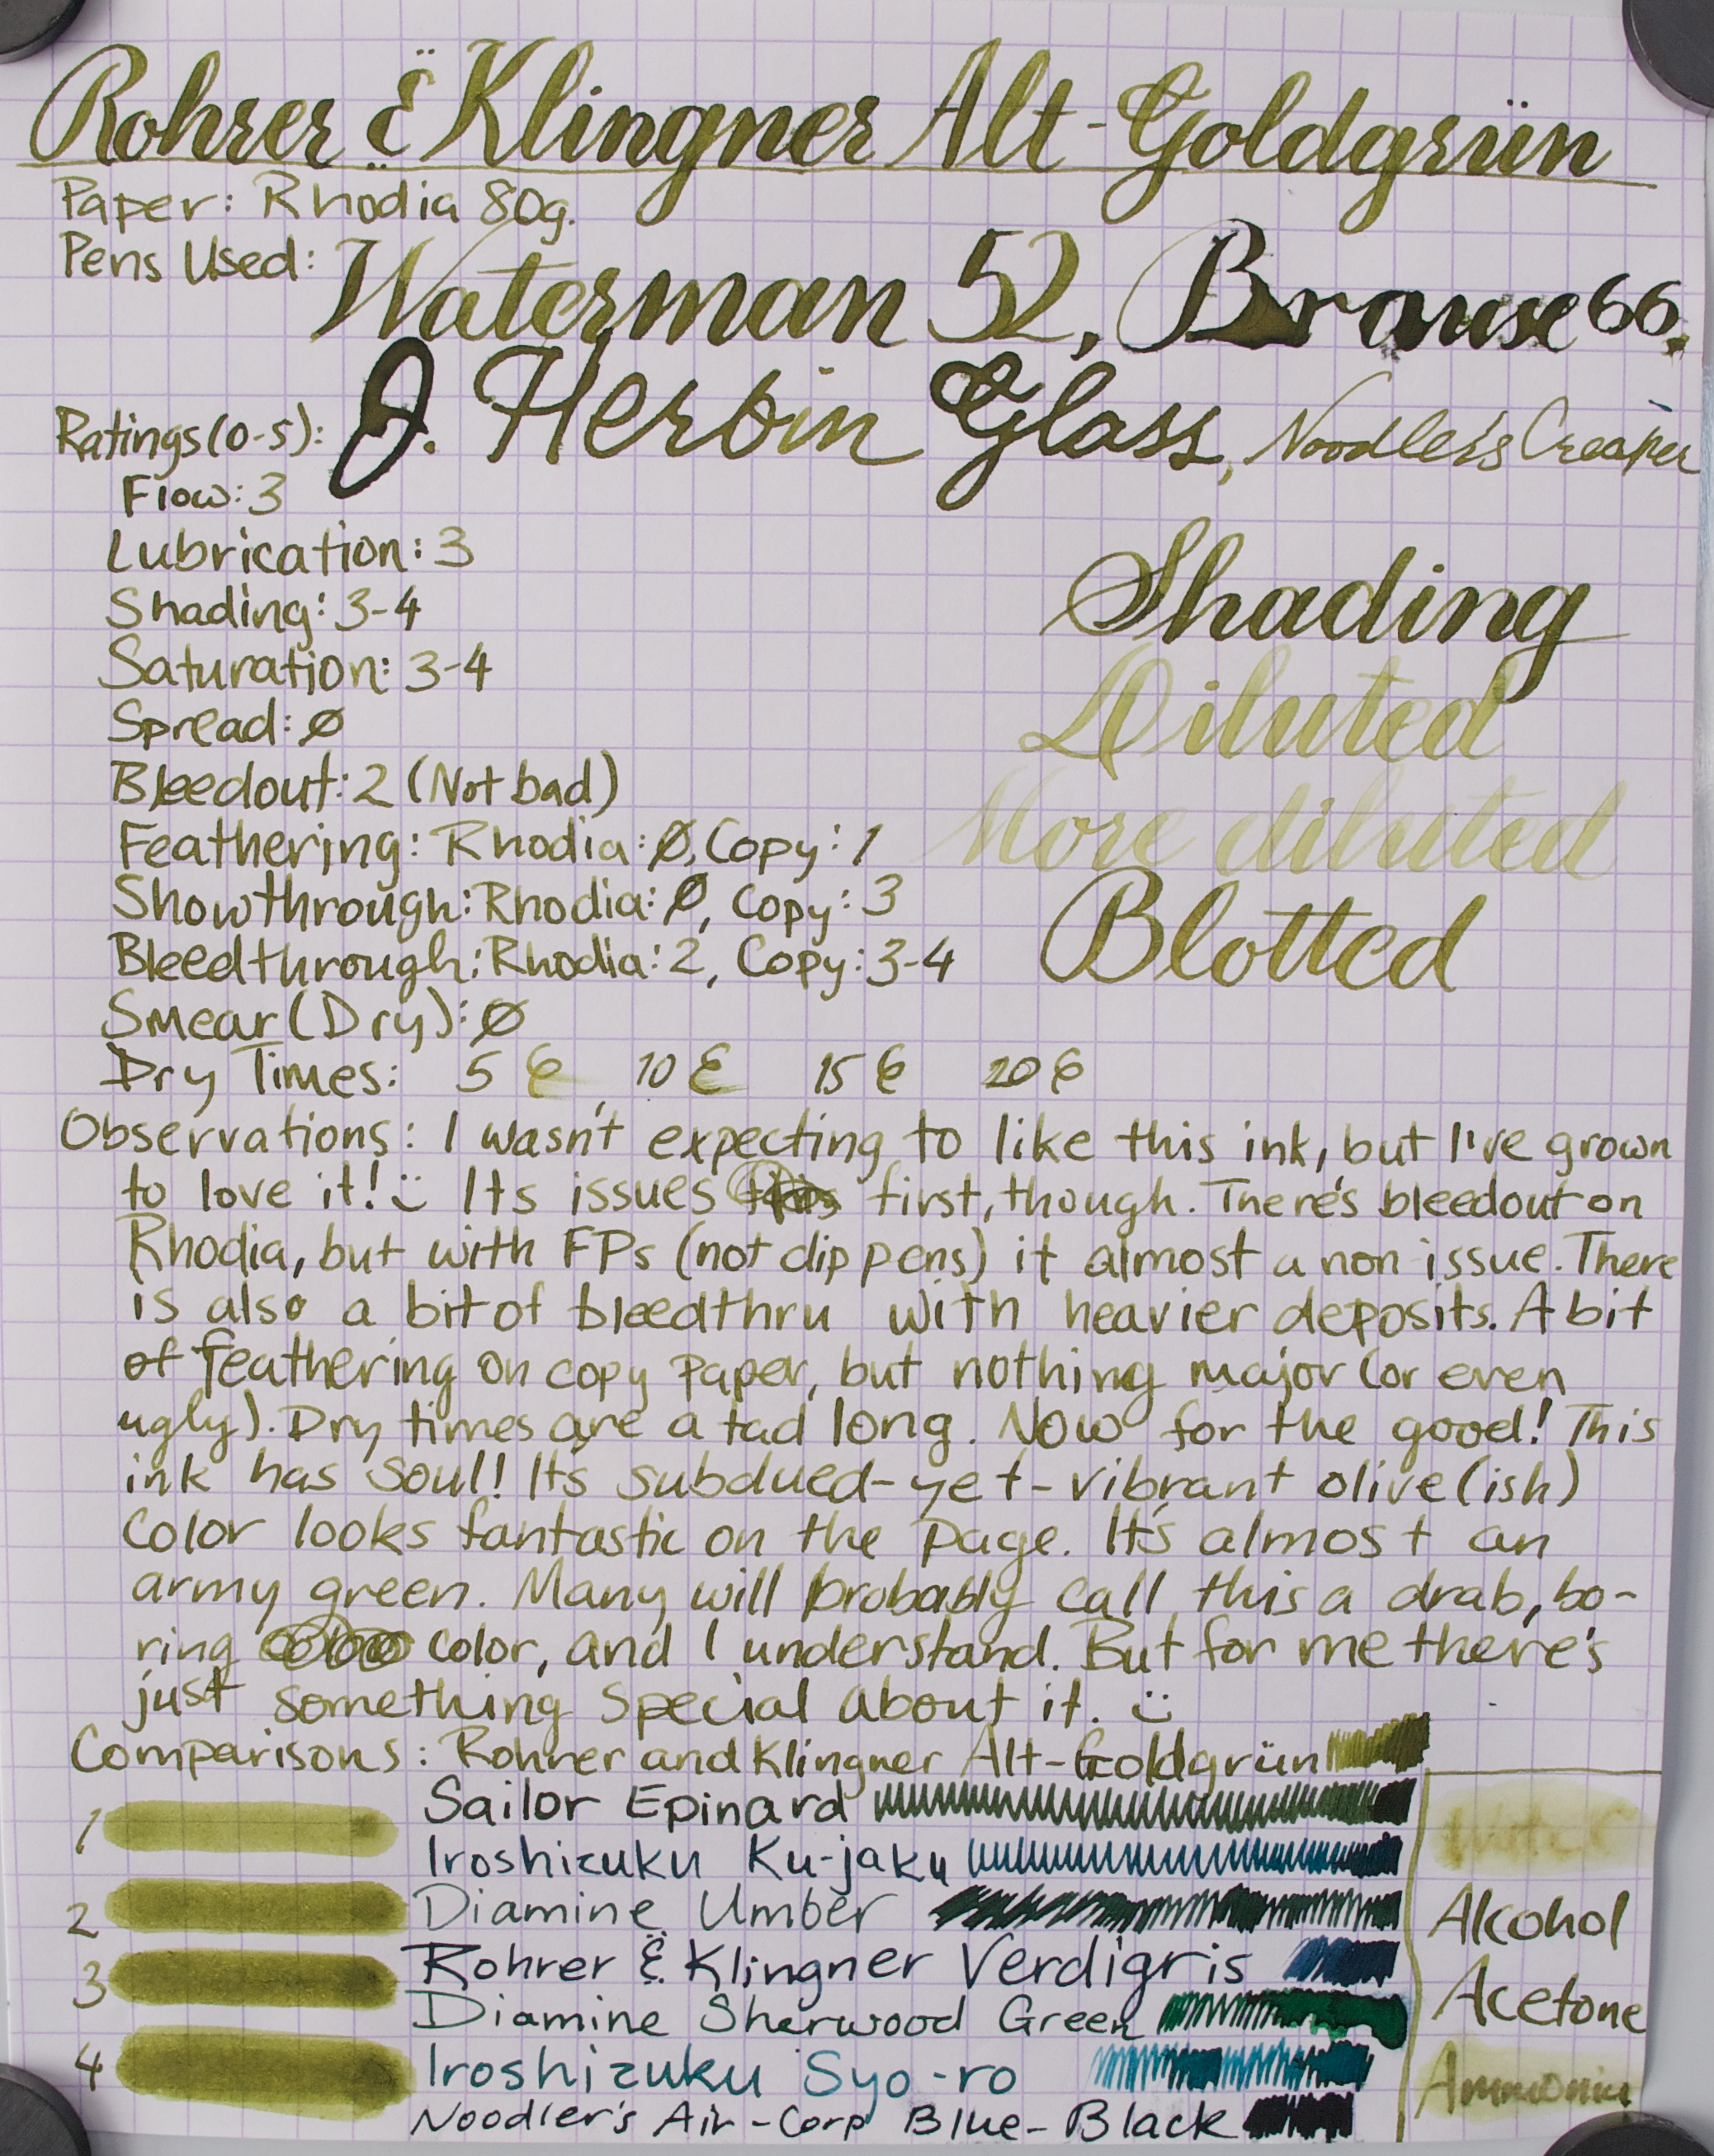 Rohrer & Klingner Alt-Goldgrün
Paper: Rhodia 80g.
Pens Used: Waterman 52, Brause 66,
J. Herbin Glass, Noodler's Creaper
Ratings (0-5):
Flow: 3
Lubrication: 3
Shading: 3-4
Saturation: 3-4
Spread: Ø
Bleedout: 2 (Not bad)
Feathering: Rhodia: Ø, Copy: 1
Showthrough: Rhodia: Ø, Copy: 3
Bleedthrough: Rhodia: 2, Copy: 3-4
Smear (Dry): Ø
Shading
Diluted
More diluted
Blotted
Dry Times: 5 10 15 20
Observations: I wasn't expecting to like this ink, but I've grown
to love it! Its issues first, though. There's bleedout on
Rhodia, but with FPs (not dip pens) it almost a non issue. There
is also a bit of bleedthru with heavier deposits. A bit
of feathering on copy paper, but nothing major (or even
ugly). Dry times are a tad long. Now for the good! This
ink has soul! It's subdued-yet-vibrant olive(ish)
color looks fantastic on the page. It's almost an
army green. Many will probably call this a drab, bo-
ring color, and I understand. But for me there's
just something special about it.
Comparisons: Rohrer and Klingner Alt-Goldgrün
Sailor Epinard
Iroshizuku Ku-jaku
Diamine Umber
Rohrer & Klingner Verdigris
Diamine Sherwood Green
Iroshizuku Syo-ro
Noodler's Air-Corp Blue-Black
1
2
3
4
Water
Alcohol
Acetone
Ammonia